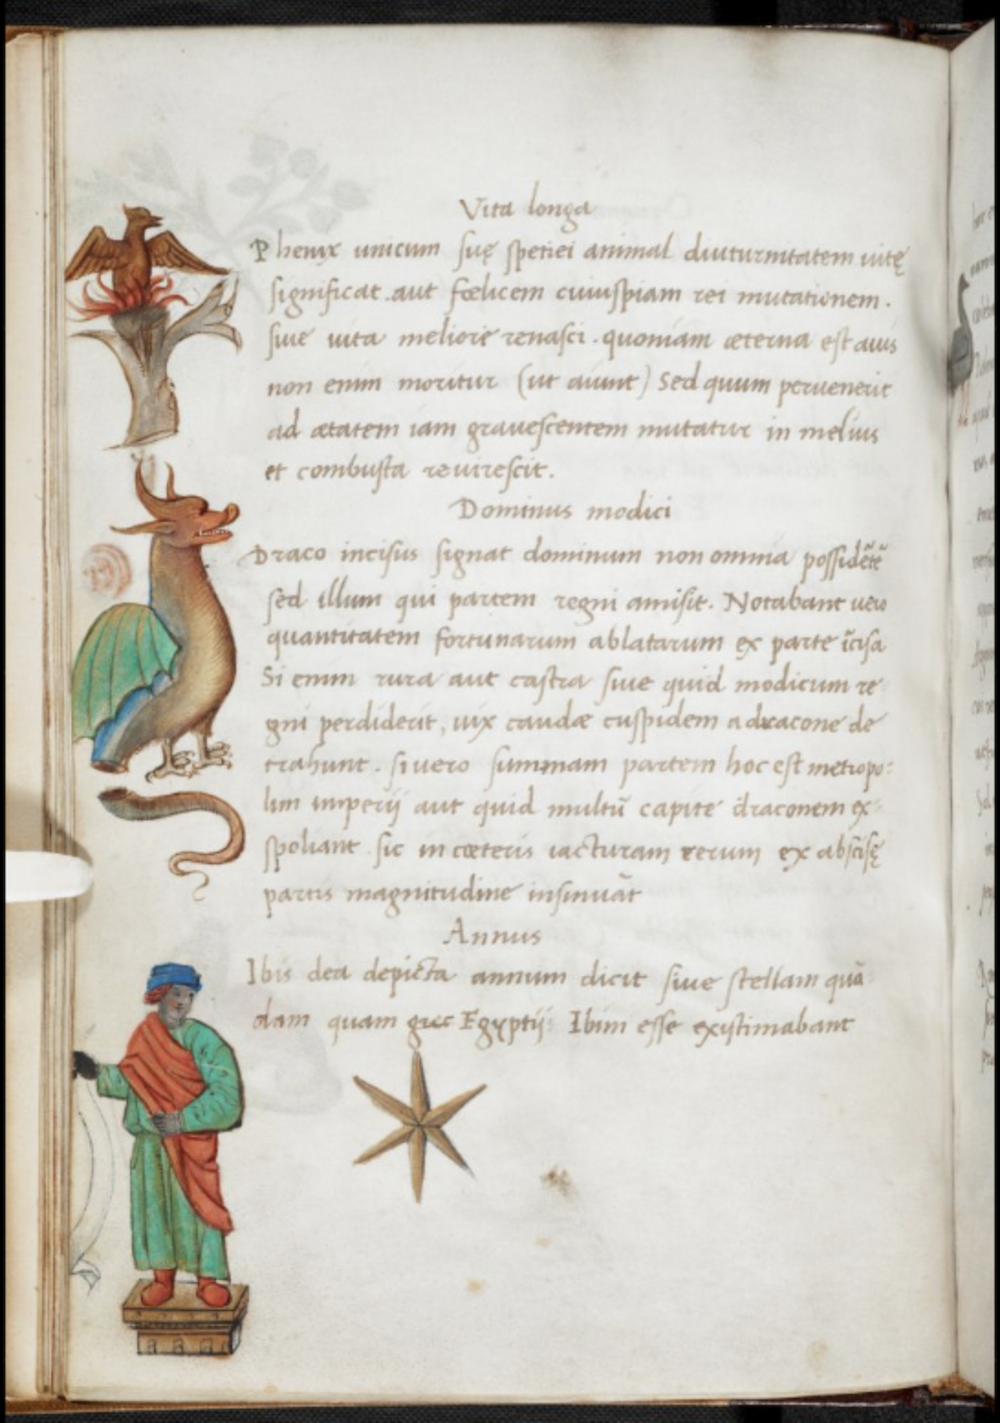 Vita longa
Phenix unicum suę spetiei animal diuturnitatem uitę
significat. aut fœlicem cuiuspiam rei mutationem.
siue uita meliore renasci. quoniam æterna est auis
non enim moritur (ut aiunt) Sed quum peruenerit
ad ætatem iam grauescentem mutatur in melius
et combusta reuirescit.
Dominus modici
Draco incisus signat dominum non omnia possidẽtẽ
sed illum qui partem regni amisit. Notabant uero
quantitatem fortunarum ablatarum ex parte ĩcisa
Si enim rura aut castra siue quid modicum re
gni perdiderit, uix caudæ cuspidem a dracone de
trahunt. si uero summam partem hoc est metropo-
lim imperij aut quid multũ capite draconem ex-
spoliant sic in cœteris iacturam rerum ex abscisę
partis magnitudine insinuãt
Annus
Ibis dea depicta annum dicit siue stellam quã
dam quam Egyptij Ibim esse existimabant